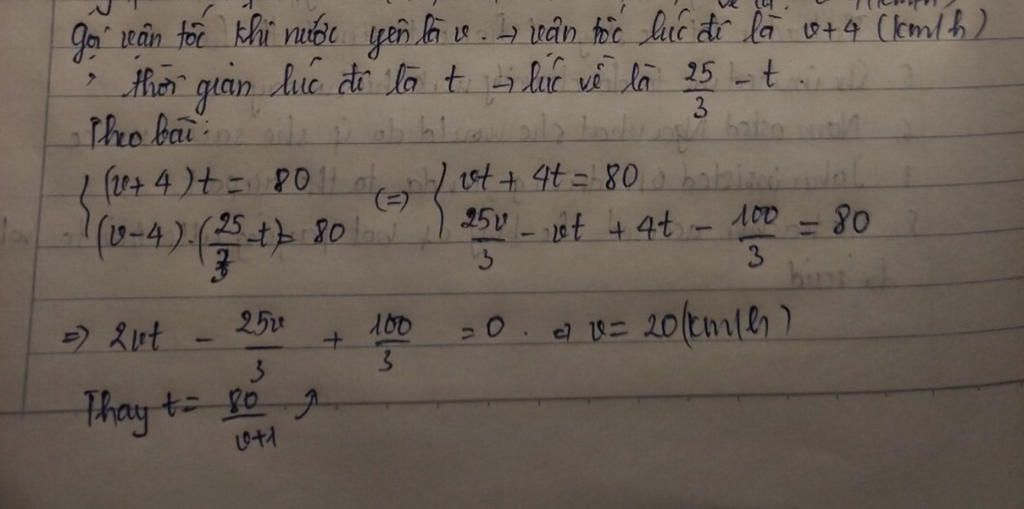 Gọi vận tốc khi nước yên là v. → vận tốc lúc đi là v+4 (km/h)
, thời gian lúc đi là t → lúc về là 25/3 - t.
Theo bài:
{ (v+4)t = 80 (=) { vt + 4t = 80
(v-4).(25/3 -t) = 80 25v/3 - vt + 4t - 100/3 = 80
=> 2vt - 25v/3 + 100/3 = 0. => v = 20(km/h)
Thay t = 80/v+1 ↗